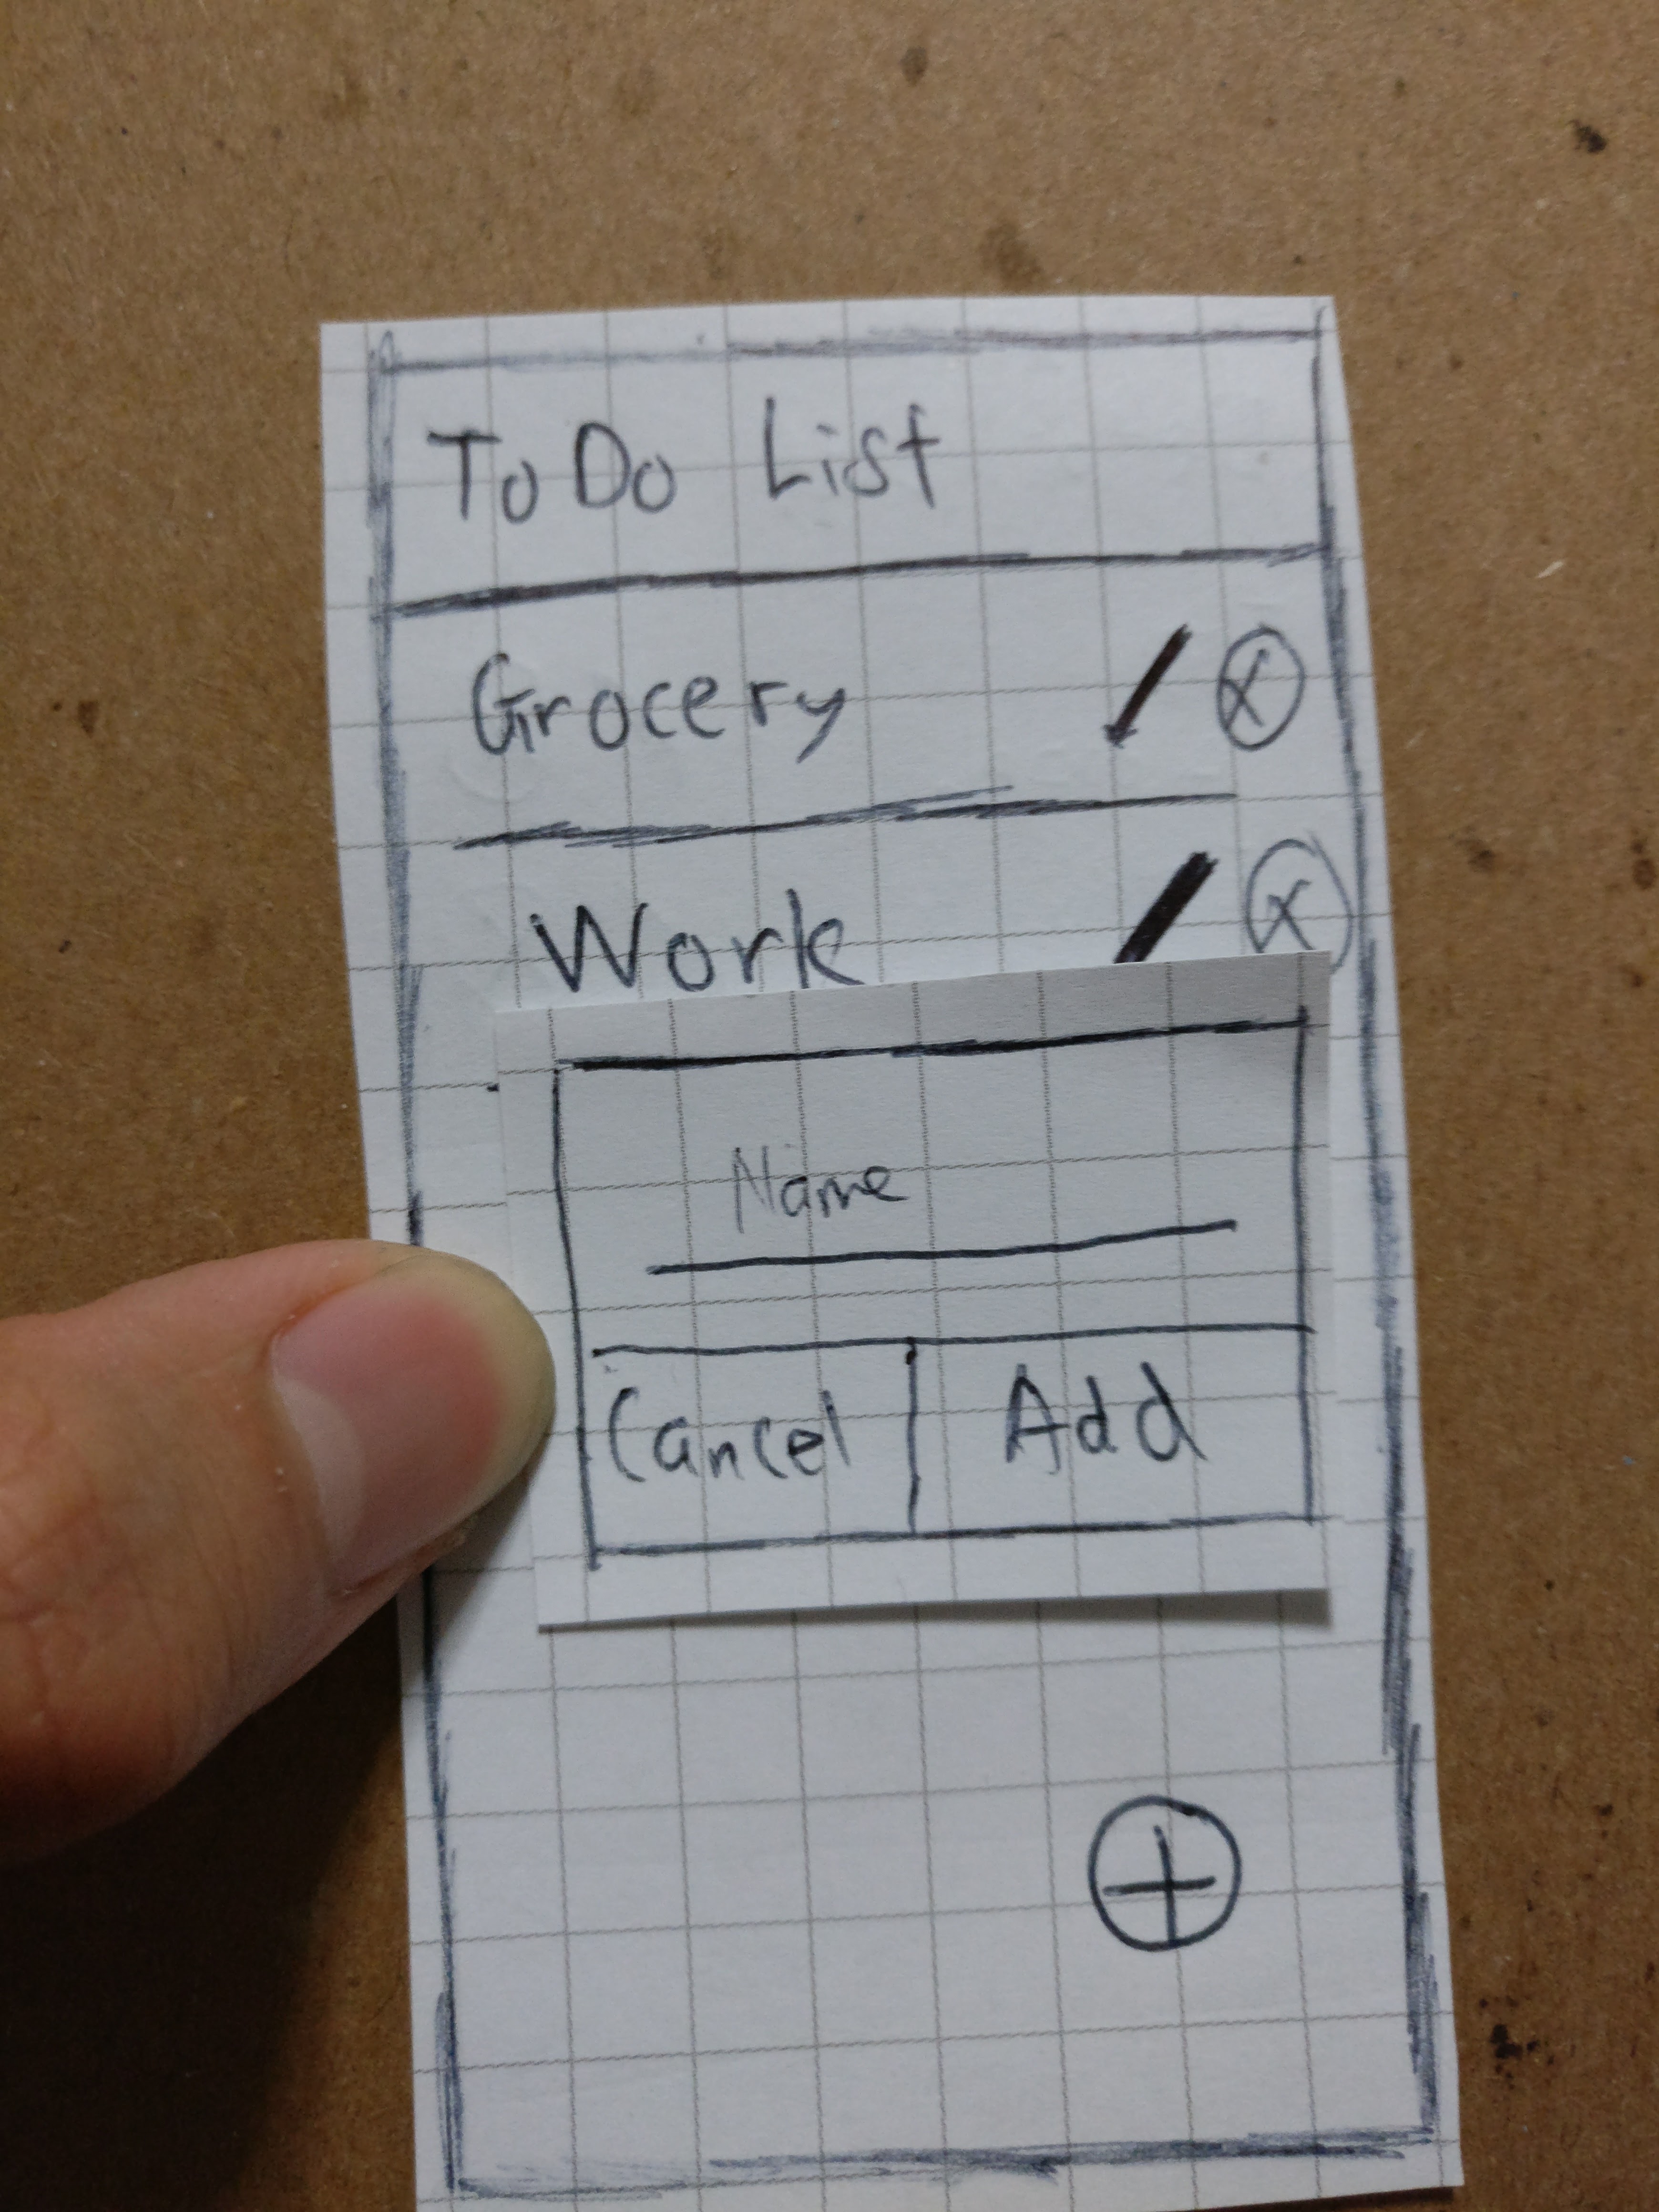 ToDo List
Grocery
Work
Name
Cancel Add